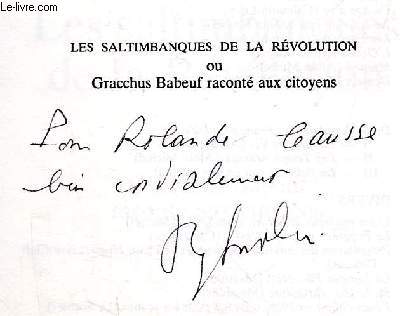 Le-livre.com
LES SALTIMBANQUES DE LA RÉVOLUTION
ou
Gracchus Babeuf raconté aux citoyens
Pour Rolande Causse
bien cordialement